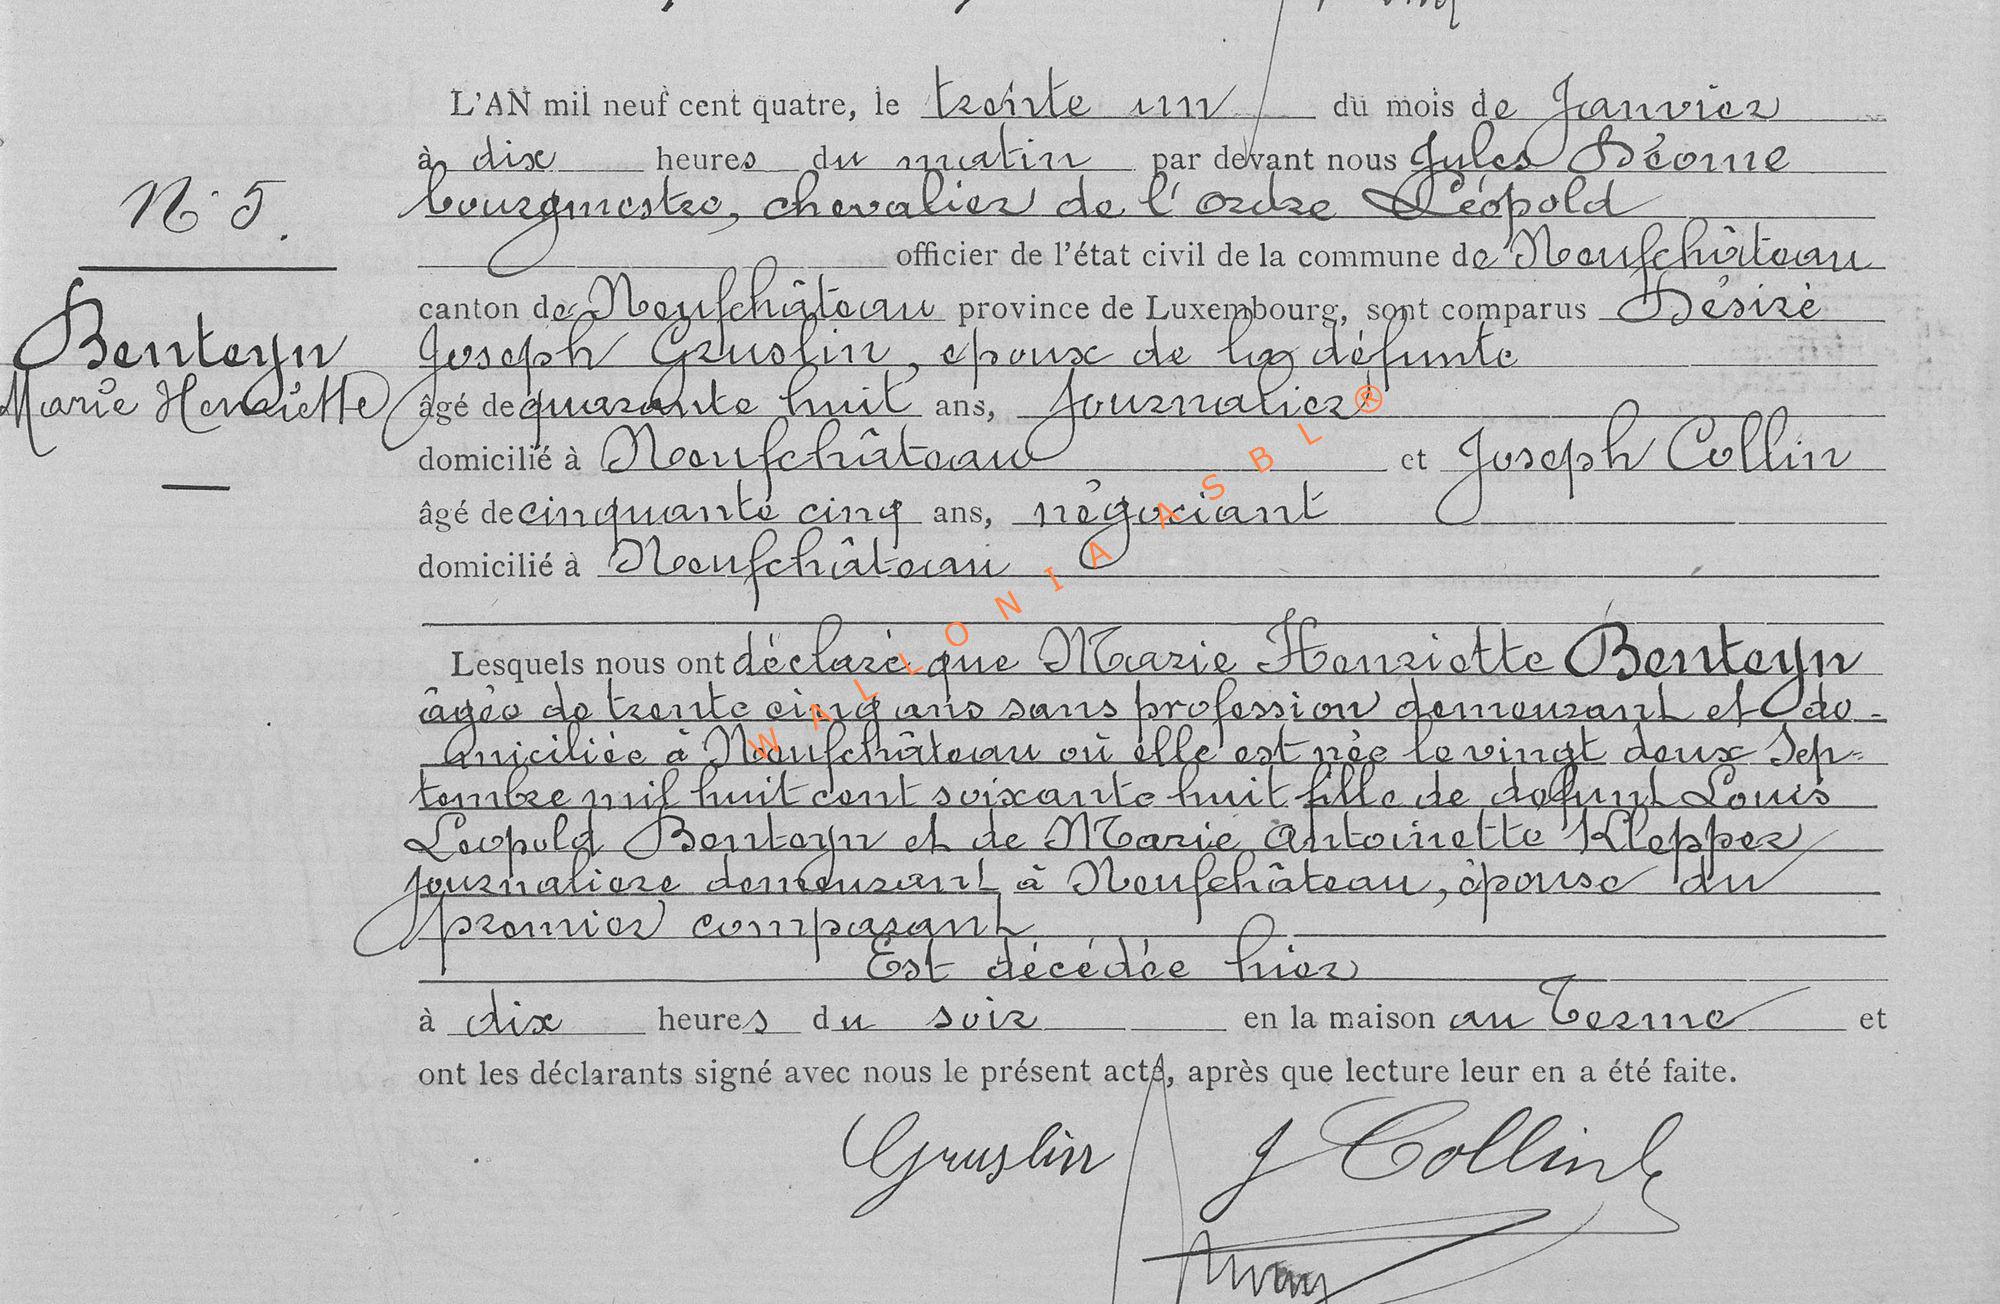 L'AN mil neuf cent quatre, le trente un du mois de Janvier
à dix heures du matin par devant nous Jules Déome
bourgmestre, chevalier de l'ordre Léopold
N° 5.
officier de l'état civil de la commune de Neufchâteau
canton de Neufchâteau province de Luxembourg, sont comparus Désiré
Benteyn
Joseph Gruslin, époux de la défunte
Marie Henriette
âgé de quarante huit ans, journalier
domicilié à Neufchâteau et Joseph Collin
âgé de cinquante cinq ans, négociant
domicilié à Neufchâteau
WALLONIA ASBL®
Lesquels nous ont déclaré que Marie Henriette Benteyn
âgée de trente cinq ans sans profession demeurant et do-
miciliée à Neufchâteau où elle est née le vingt deux Sep-
tembre mil huit cent soixante huit fille de défunt Louis
Leopold Benteyn et de Marie Antoinette Klepper
journalière demeurant à Neufchâteau, épouse du
premier comparant
Est décédée hier
à dix heures du soir en la maison au Terme et
ont les déclarants signé avec nous le présent acte, après que lecture leur en a été faite.
Gruslin J Collin